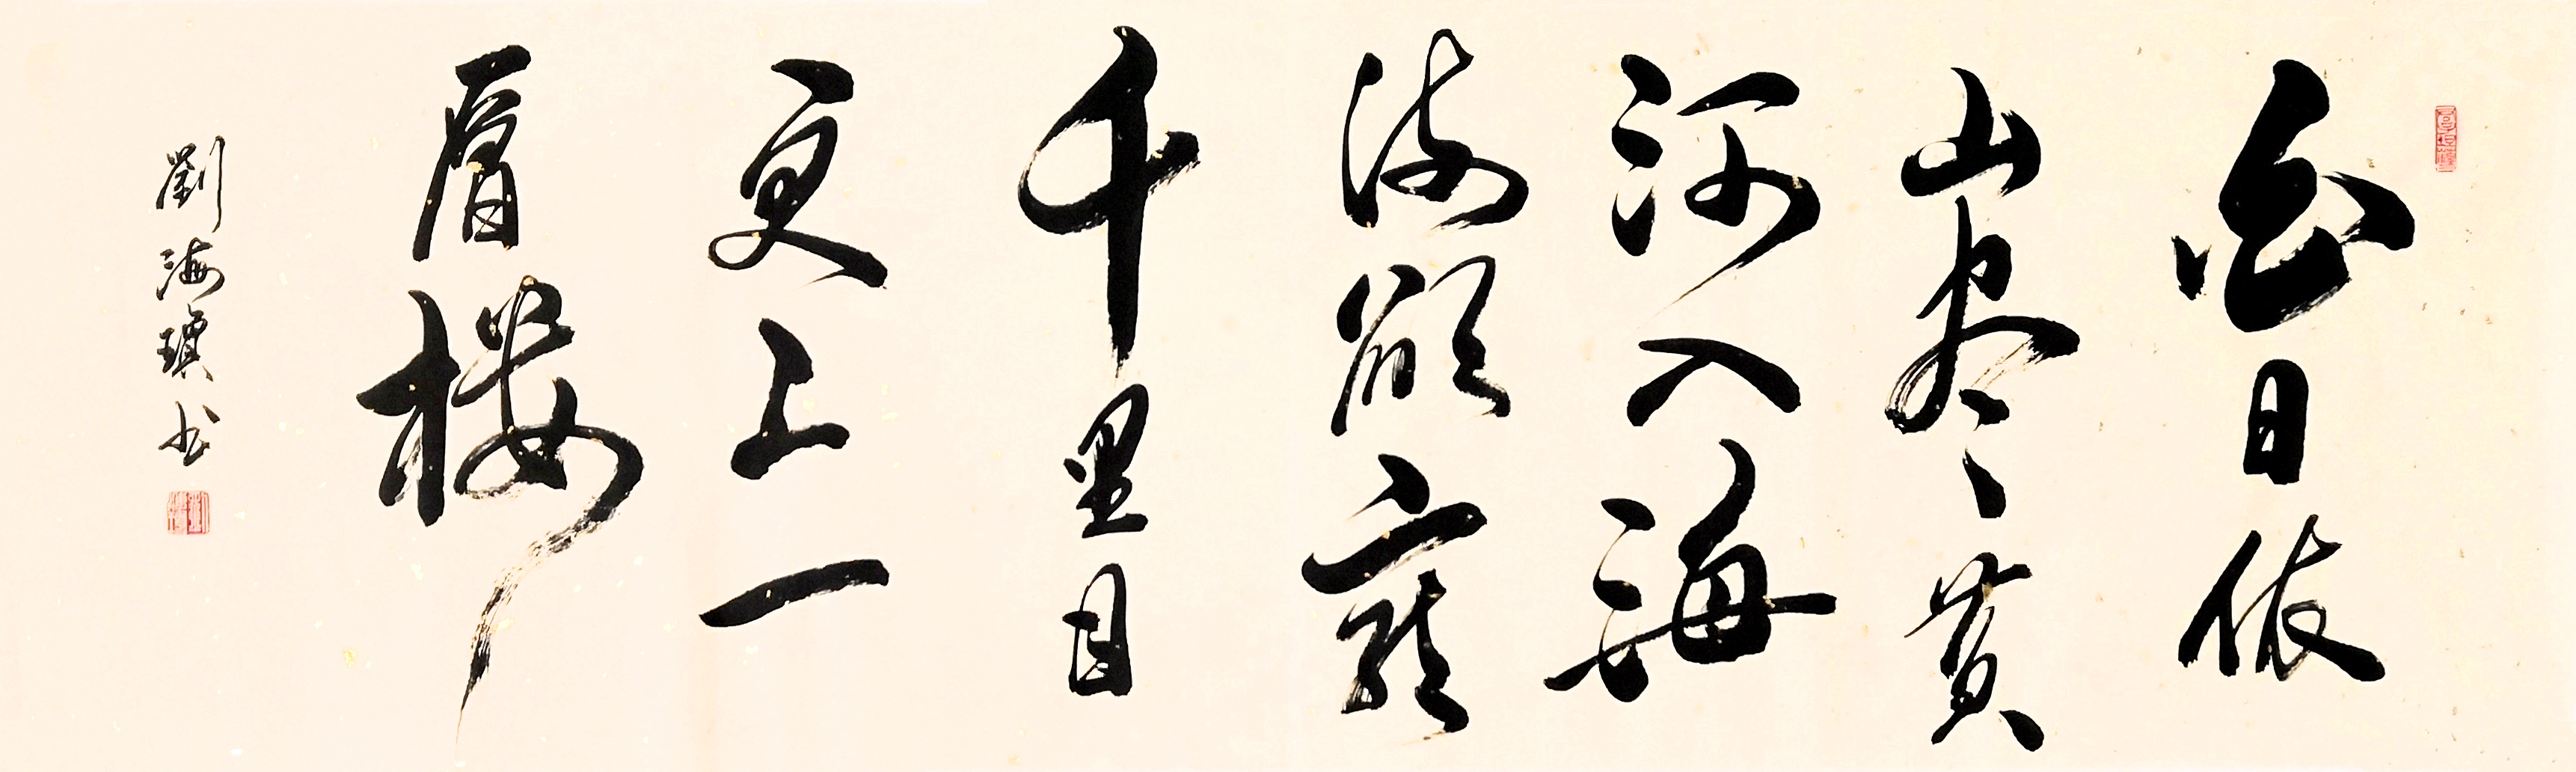 白日依
山尽黄
河入海
流欲窮
千里目
更上一
層樓
劉海书